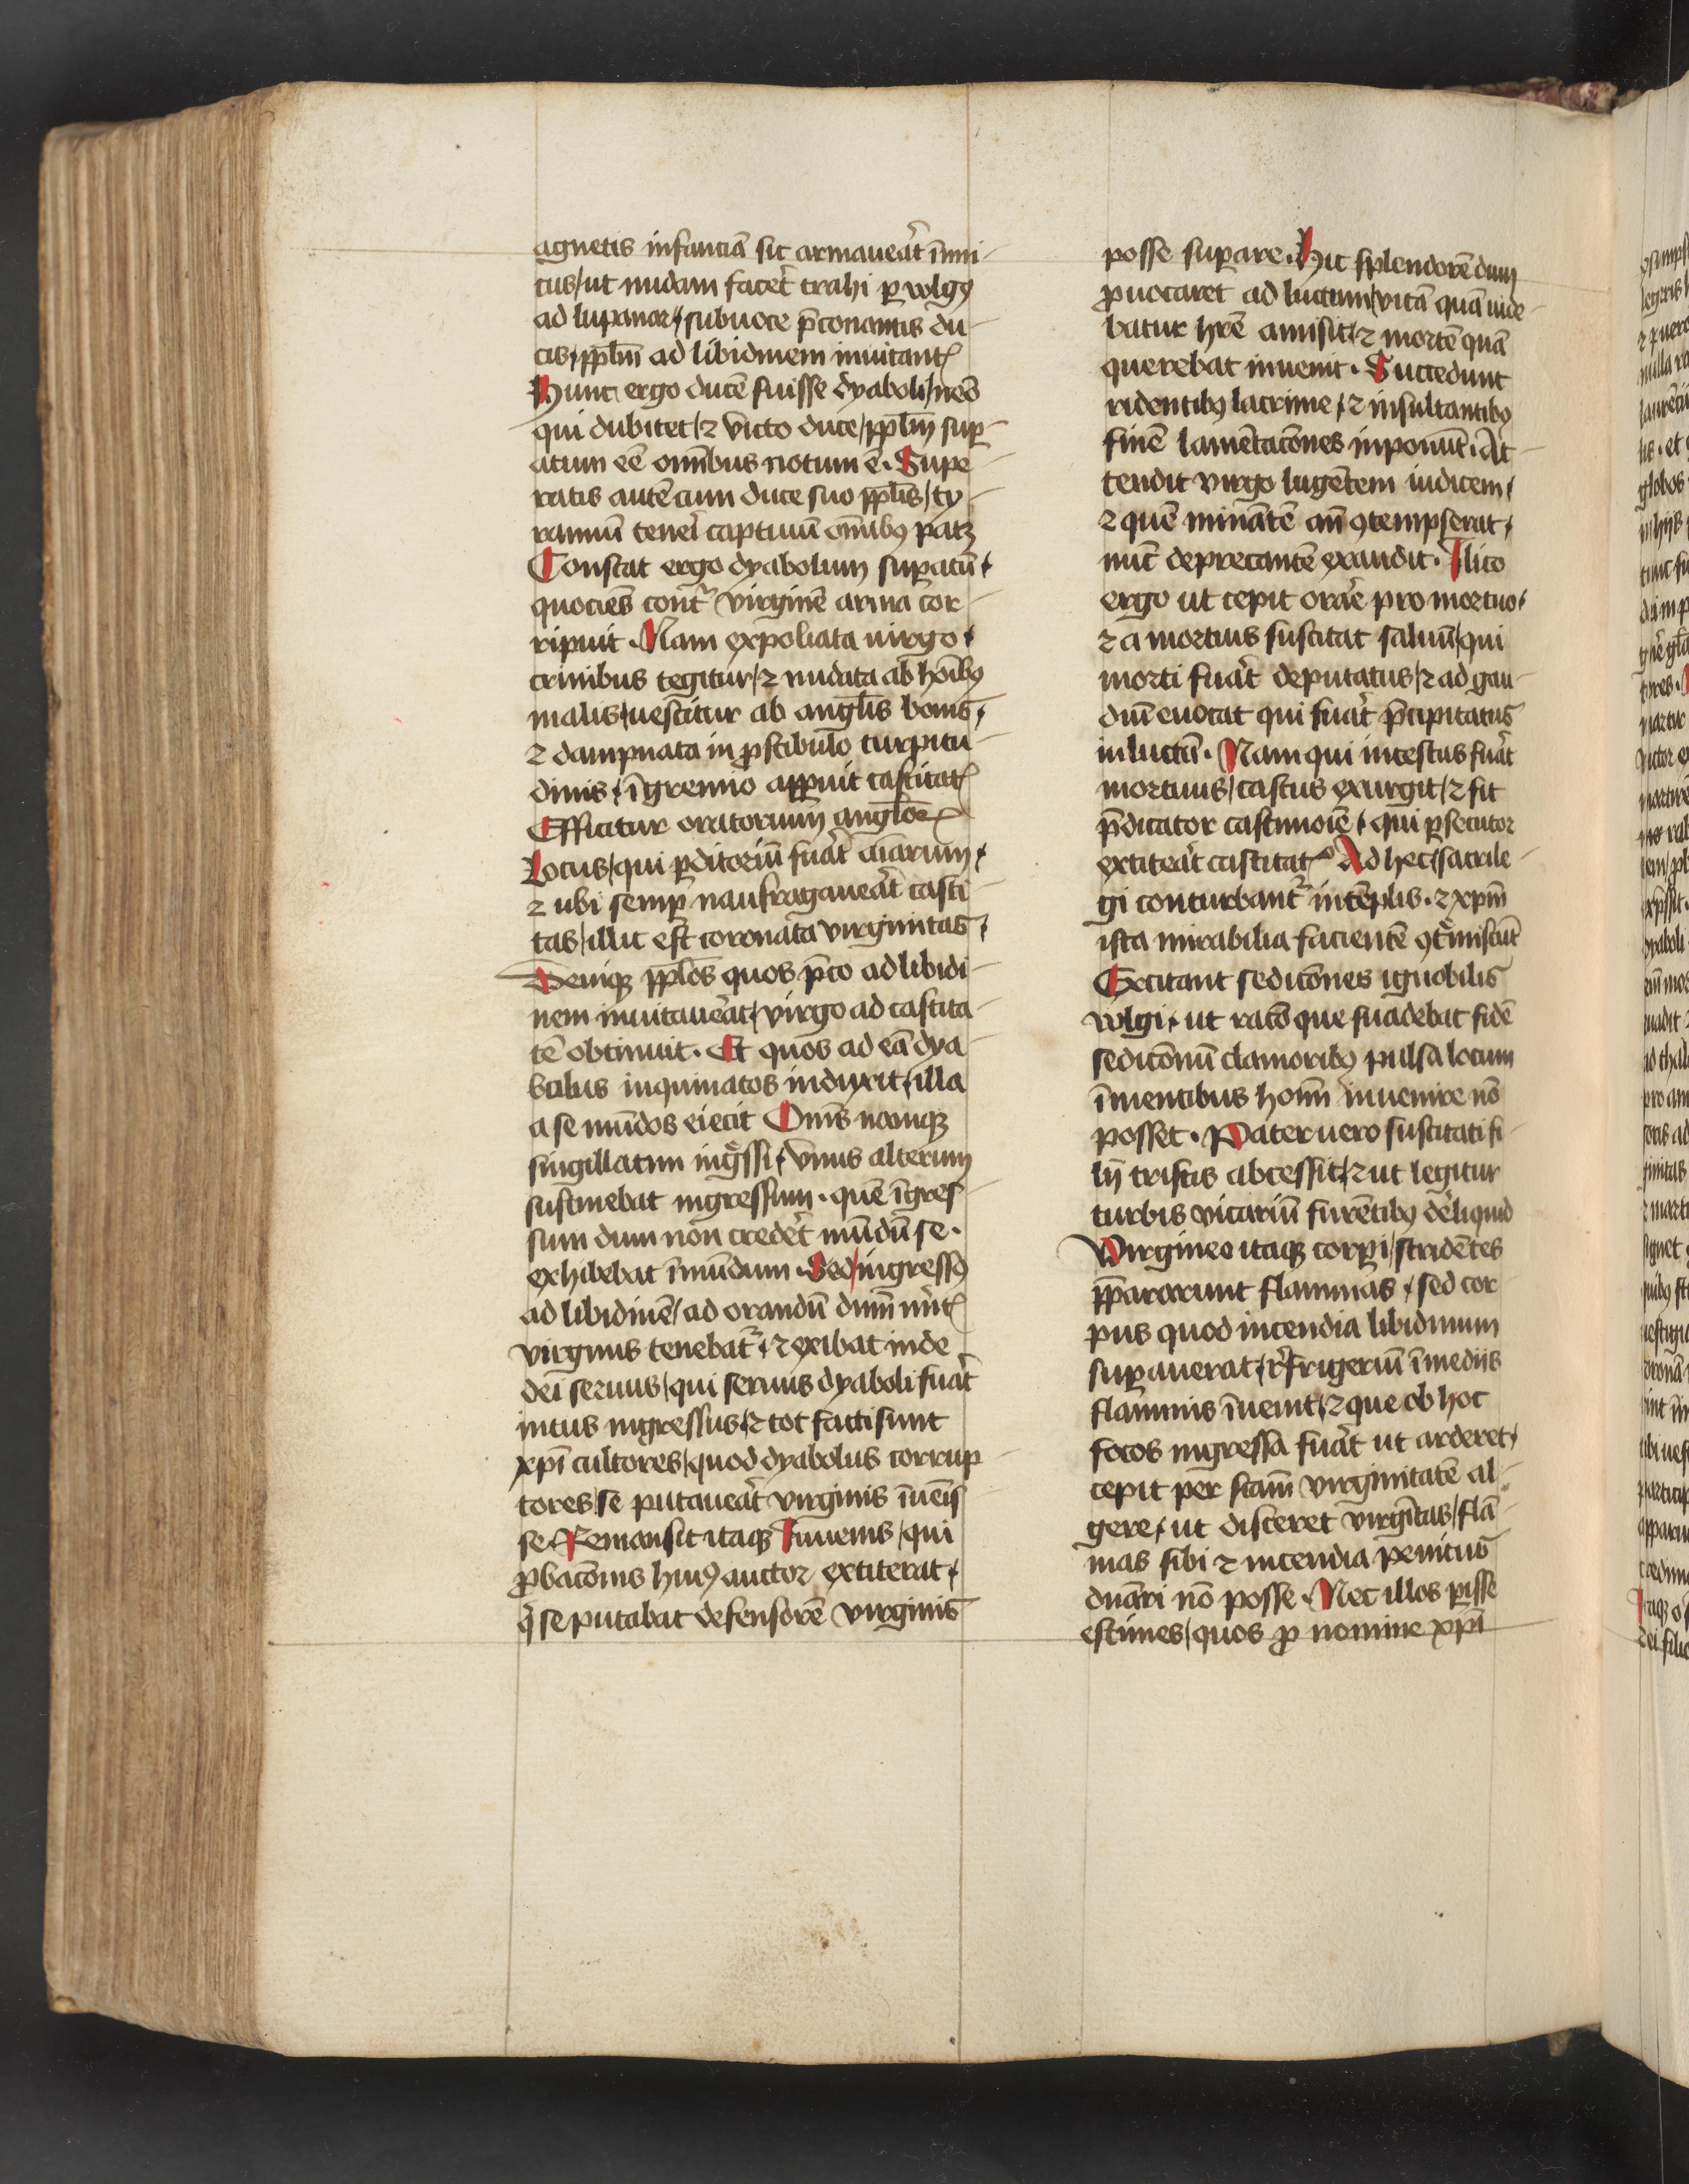 agnetis infanciā sic armaueāt inimi-
cus / ut nudam facēt trahi ꝑ volgꝯ
ad lupanar / sub uoce p̄conantis du-
cis / ppl̄m ad libidinem inuitantꝭ
Hunc ergo ducē fuisse dyaboli / nēo
qui dubitet / ⁊ victo duce / ppl̄m suꝑ-
atum eē omībus notum ē . Supe-
ratis autē cum duce suo ppl̄is / ty-
rannū tenēi captiuū om̄ibꝰ patꝫ
Constat ergo dyabolum suꝑatū /
quociēs cont̄ virginē arma cor-
ripuit . Nam expoliata uirgo /
crinibus tegitur / ⁊ nudata ab hoībꝰ
malis / uestitur ab angl̄is bonis /
⁊ dampnata in ꝓstibulo turpitu-
dinis / ī gremio appuit castitatꝭ
Efficitur oratorium angl̄oꝝ
Locus / qui ꝑditoriū fuāt aīarum /
⁊ ubi semꝑ naufragaueāt casti-
tas / illic est coronata virginitas /
Deniqꝫ ppl̄os quos p̄co ad libidi-
nem inuitauēat / virgo ad castita-
tē obtinuit . Et quos ad eā dya-
bolus inquinatos induxit / illa
a se mūdos eiecit Om̄s namqꝫ
singillatim ingͤssi / vnus alterum
sustinebat ingressum . quē īgres-
sum dum non credēt mūdū se .
exhibebat īmūdum . Sed / ingressꝰ
ad libidinē / ad orandū dum mīt
virginis tenebat̄ / ⁊ exibat inde
dei seruus / qui seruus dyaboli fuāt
intus ingressus / ⁊ tot facti sunt
xp̄i cultores / quod dyabolus corrup-
tores se putaueāt virginis īueīs-
se Remansit itaqꝫ Iuuenis / qui
ꝓbac̄onis huiꝰ auctor extiterat /
q̄ se putabat defensorē virginis
posse suꝑare . Hic splendorē dum
ꝓuocaret ad luctum / vitā quā uide-
batur hr̄e amisit / ⁊ mortē quā
querebat inuenit . Succedunt
ridentibꝰ lacrime / ⁊ insultantibꝰ
finē lamētac̄ones inponūt . At-
tendit virgo lugētem iudicem /
⁊ quē minātē an̄ ꝯtempserat /
nūc deprecantē exaudit . Ilico
ergo ut cepit orāe pro mortuo /
⁊ a mortuis suscitat saluū / qui
morti fuāt deputatus / ⁊ ad gau-
diū euocat qui fuāt p̄cipitatus
in luctū . Nam qui incestus fuāt
mortuus / castus exurgit / ⁊ fit
p̄dicator castimoīe / qui ꝑsecutor
extiteāt castitatꝭ Ad hec / sacrile-
gi conturbant̄ in tēplis . ⁊ xp̄m
ista mirabilia facientē ꝯt̄miscūt
Excitant sedic̄ones ignobilis
volgi / ut rac̄o que suadebat fidē
sedic̄onū clamoribꝰ pulsa locum
īmentibus hoīm inuenire nō
posset . Pater uero suscitati fi-
lij tristis abcessit / ⁊ ut legitur
turbis vicariū furētibꝰ dēliquid
Virgineo itaqꝫ corꝑi / stridētes
pp̄ararunt flammas / sed cor-
pus quod incendia libidinum
suꝑauerat / rēfrigeriū īmedijs
flammis īuenit / ⁊ que ob hoc
focos ingressa fuāt ut arderet /
cepit per scām virginitatē al-
gere / ut disceret virgītas / flā-
mas sibi ⁊ incendia penitus
dnāri nō posse . Nec illos ꝑisse
estimes / quos ꝓ nomine xp̄i